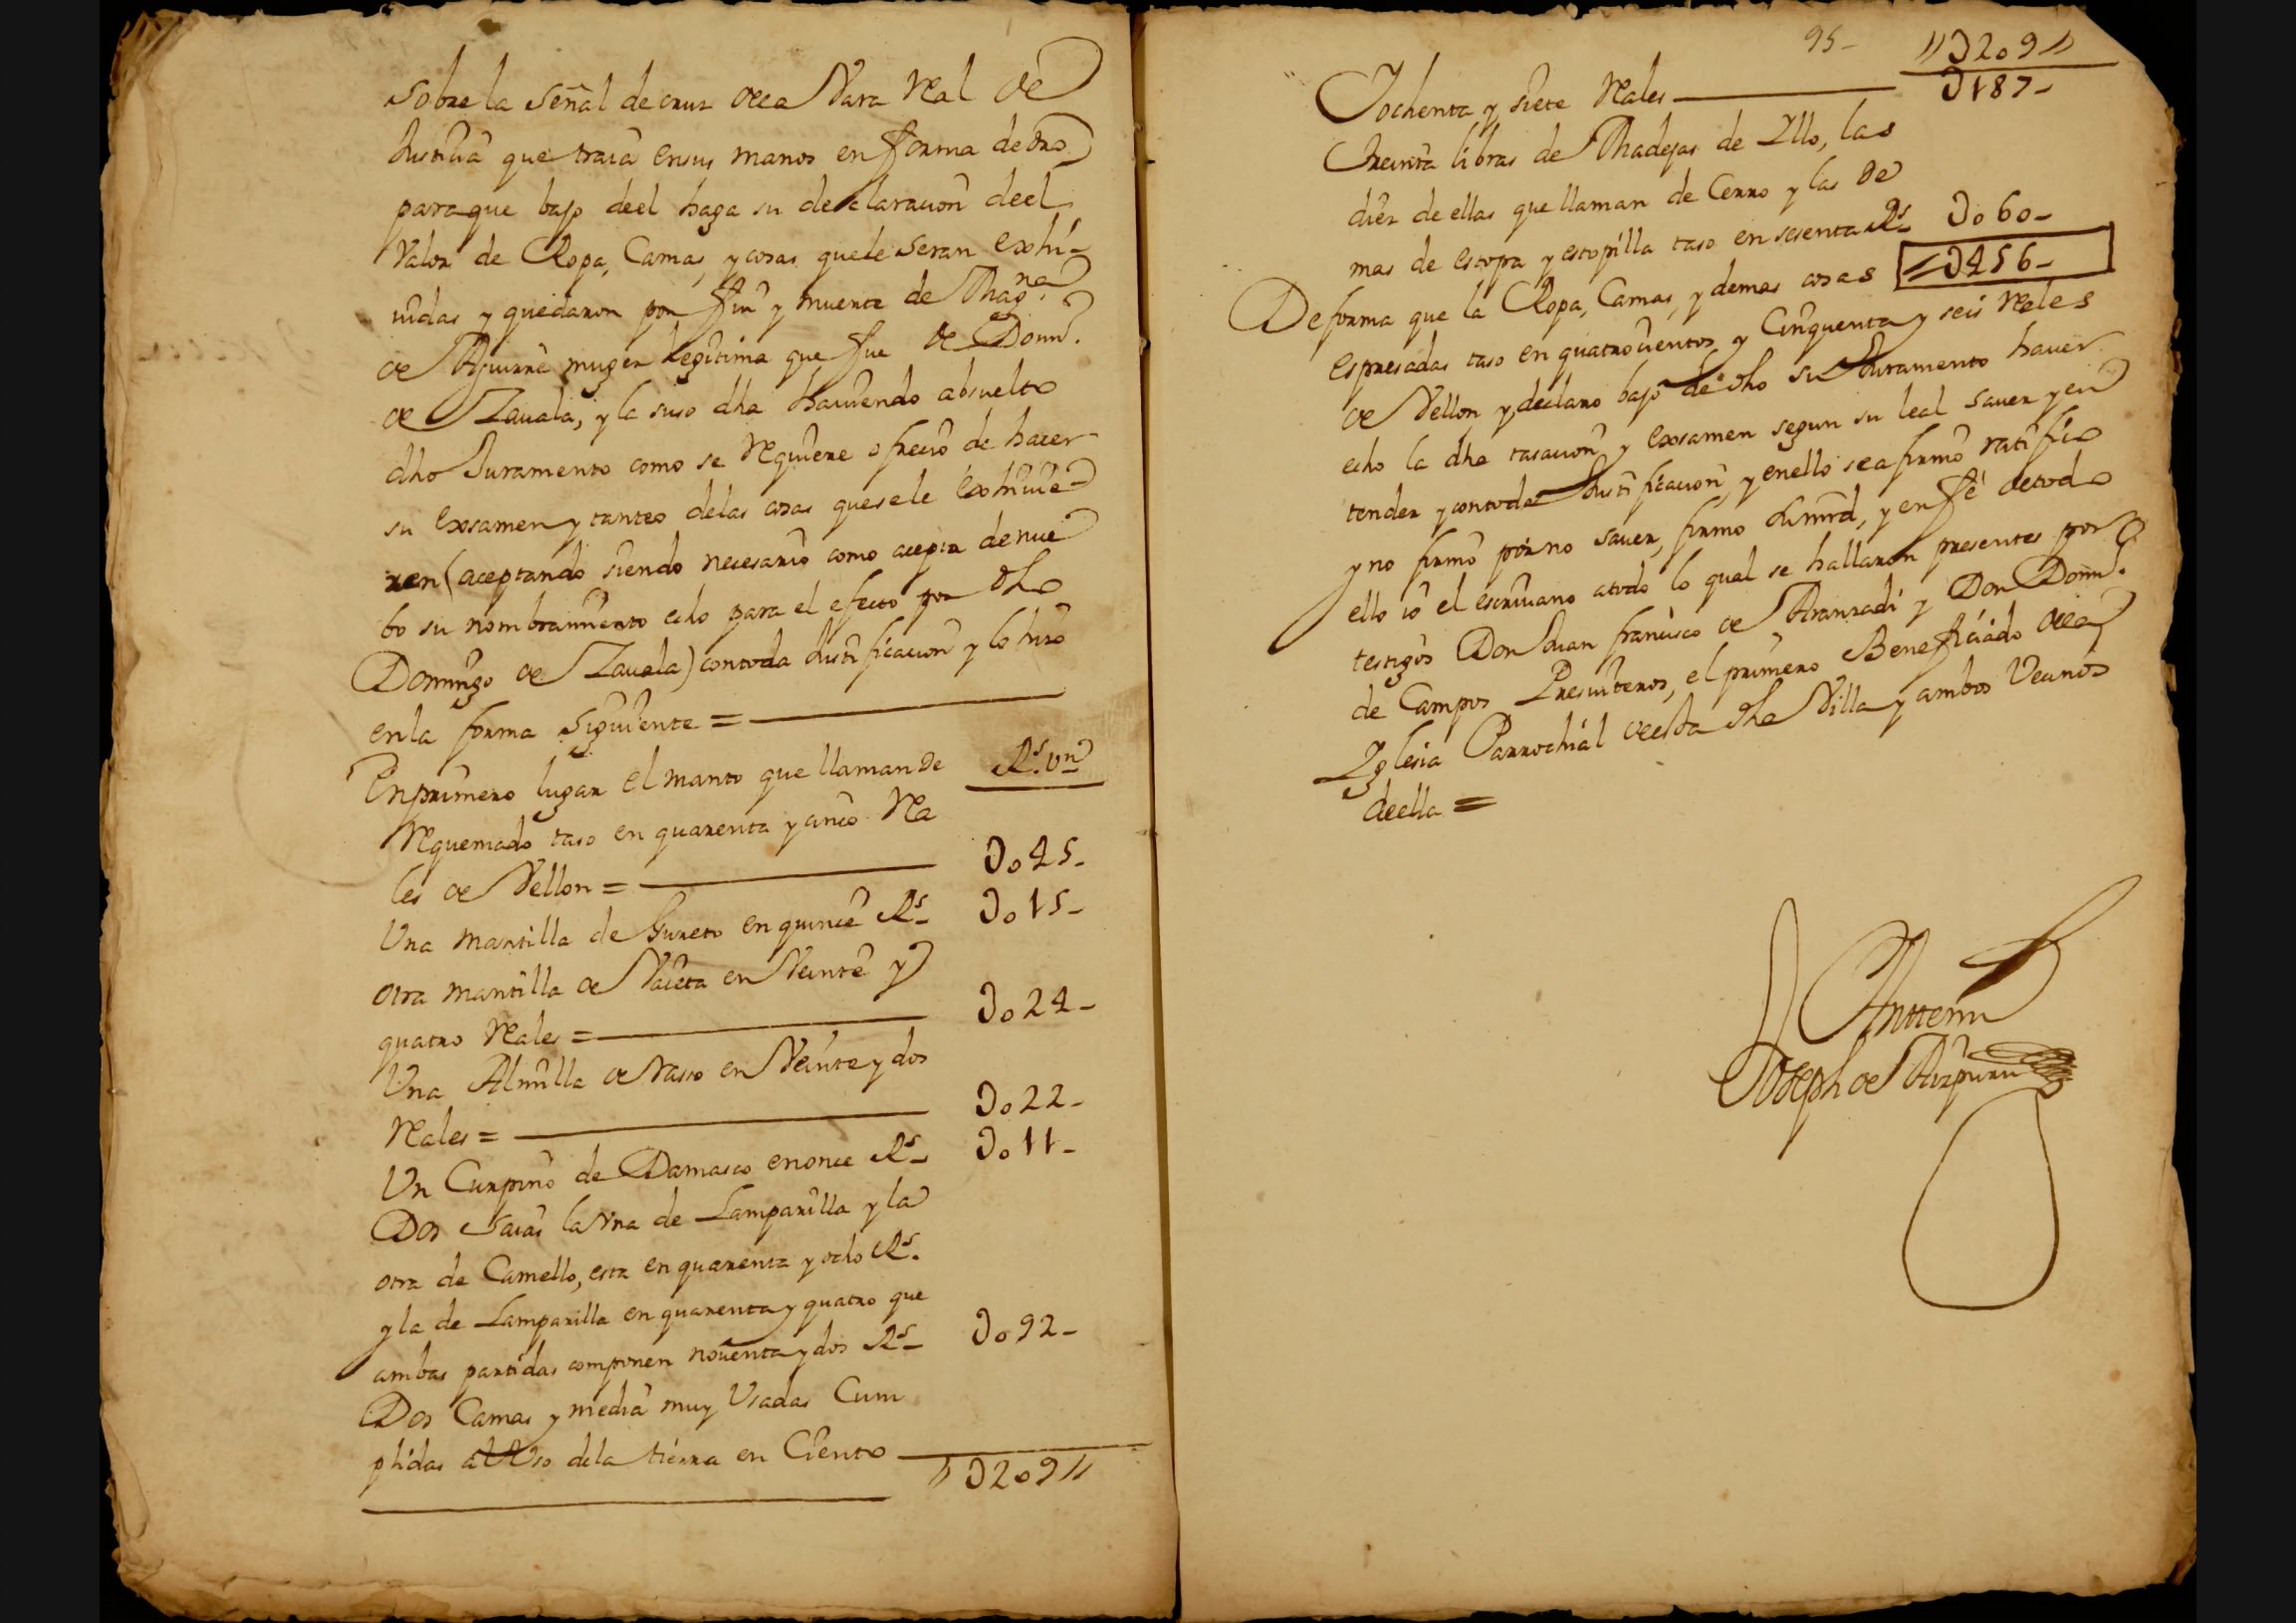 sobre la señal de cruz de la Vara Real de
Justicia que traia en sus manos en forma de dro
para que bajo de el haga su declaracion de el
Valor de Ropa, Camas, y cosas que le seran exhi-
vidas y quedaron por fin y muerte de Magna
de Aguirre muger legitima que fue de Domo.
de Zavala, y la suso dha haviendo absuelto
dho Juramento como se Requiere ofrecio de hacer
su exsamen y tanteo de las cosas que se le exhivie-
ren (aceptando siendo necesario como acepta de nue
bo su nombramiento echo para el efecto por dho
Domingo de Zavala) con toda Justificacion y lo hizo
en la forma siguiente =
En primero lugar el manto que llaman de Rs. vn
Requemado taso en quarenta y cinco Rea
les de Vellon = D045-
Una mantilla de Gureto en quince Rs D015-
otra mantilla de Vaieta en Veinte y
quatro Reales = D024-
Una Almilla de raso en Veinte y dos
Reales = D022-
Un Curpino de Damasco en once Rs D011-
Dos saias la Vna de Lamparilla y la
otra de Camello, esta en quarenta y ocho Rs.
y la de Lamparilla en quarenta y quatro que
ambas partidas componen noventa y dos Rs D092-
Dos Camas y media muy Usadas Cum
plidas al Uso de la tierra en Ciento
"D209"
95- "D209"
Y ochenta y siete Reales D187-
Treinta libras de Madejas de Ylo, las
diez de ellas que llaman de Cerro y las de
mas de estopa y estopilla taso en sesenta Rs D060-
De forma que la Ropa, Camas, y demas cosas D456-
espresadas taso en quatrocientos y Cinquenta y seis Reales
de Vellon y declaro bajo de dho su Juramento haver
echo la dha tasacion y exsamen segun su leal saver y en
tender y con toda Justificacion, y en ello se afirmo ratifico
y no firmo por no saver, firmo su mrd, y en fe de todo
ello io el escrivano a todo lo qual se hallaron presentes por
testigos Don Juan francisco de Aranzadi y Don Domo.
de Campos Presviteros, el primero Beneficiado de la
Yglesia Parrochial de esta dha Villa y ambos Vecinos
de ella =
Antte mi
Joseph de Aizpuru